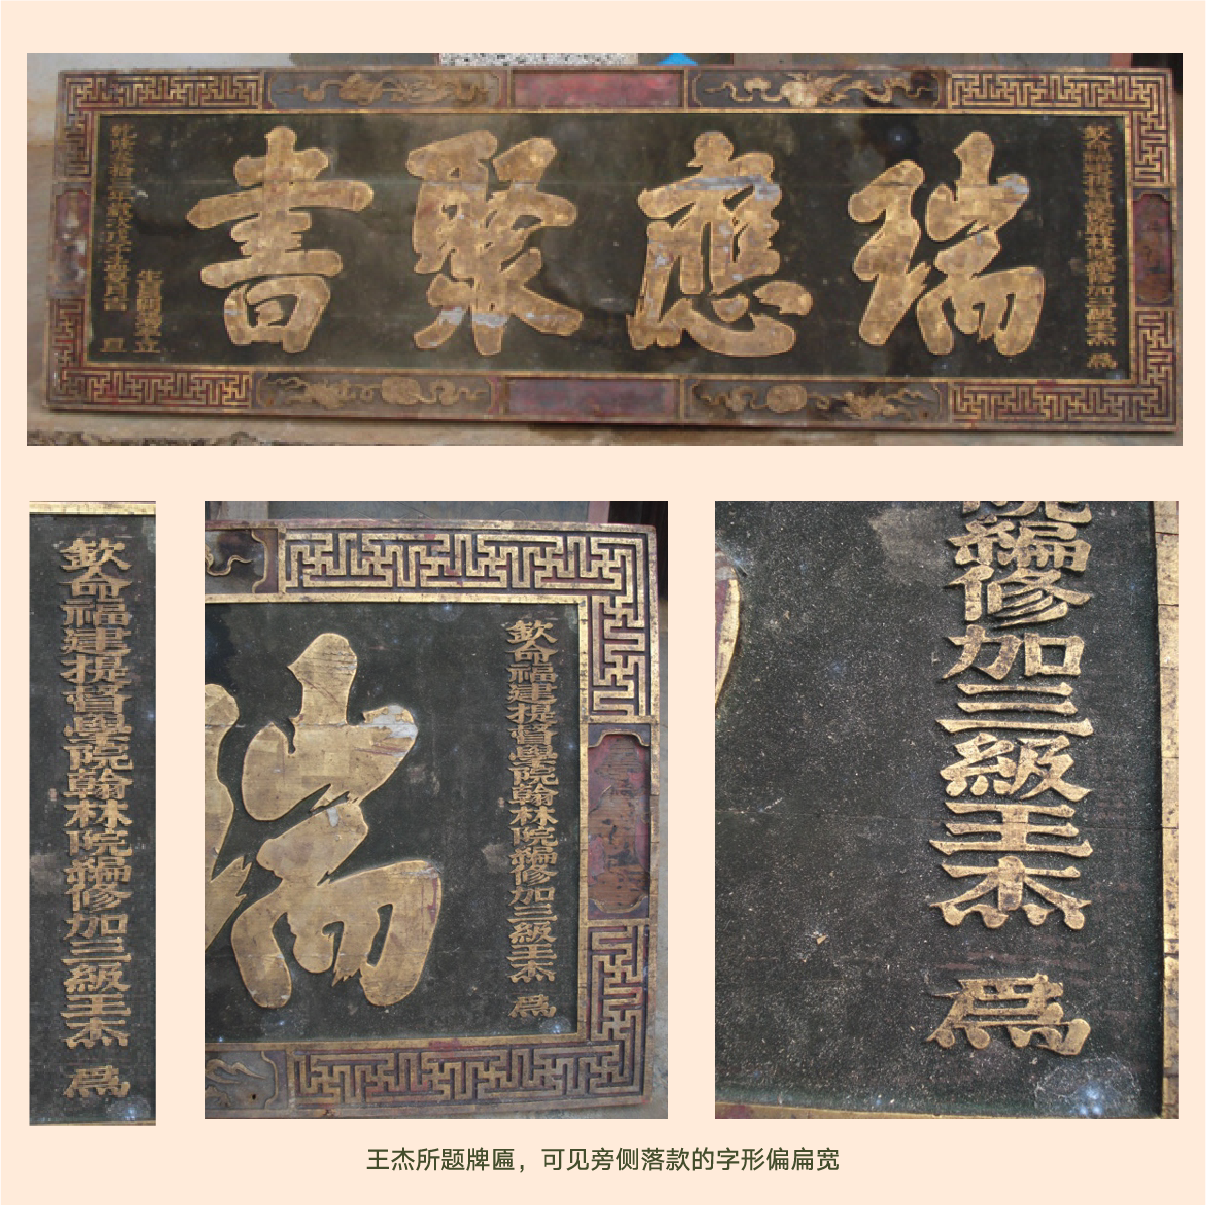 欽命福建提督學院翰林院編修加三級王杰 爲
瑞應聚書
立
乾隆 拾三年歲次戊子 月吉 旦
欽命福建提督學院翰林院編修加三級王杰 爲
欽命福建提督學院翰林院編修加三級王杰 爲
瑞
院編修加三級王杰 爲
王杰所题牌匾，可见旁侧落款的字形偏扁宽